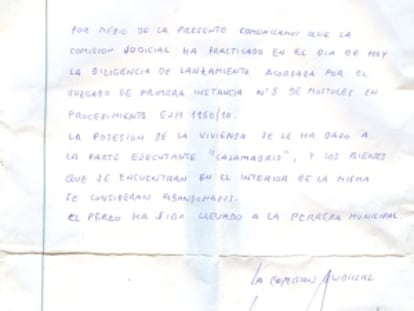 POR MEDIO DE LA PRESENTE COMUNICAMOS QUE LA
COMISION JUDICIAL HA PRACTICADO EN EL DIA DE HOY
LA DILIGENCIA DE LANZAMIENTO ACORDADA POR EL
JUZGADO DE PRIMERA INSTANCIA Nº5 DE MOSTOLES EN
PROCEDIMIENTO EJH 1260/10.
LA POSESION DE LA VIVIENDA SE LE HA DADO A
LA PARTE EJECUTANTE "CAJAMADRID", Y LOS BIENES
QUE SE ENCUENTRAN EN EL INTERIOR DE LA MISMA
SE CONSIDERAN ABANDONADOS.
EL PERRO HA SIDO LLEVADO A LA PERRERA MUNICIPAL.
LA COMISION JUDICIAL